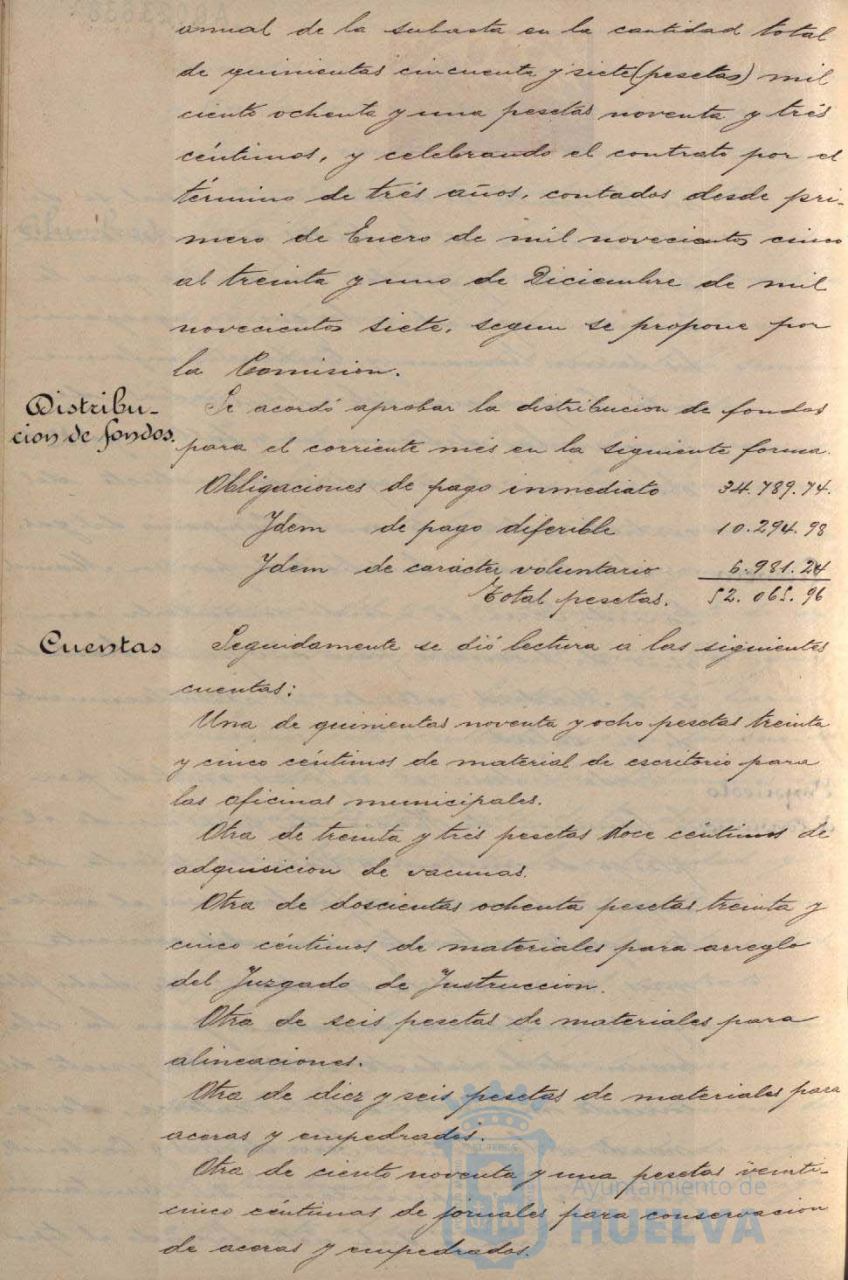 anual de la subasta en la cantidad total
de quinientas cincuenta y siete (pesetas) mil
ciento ochenta y una pesetas noventa y trés
céntimos, y celebrando el contrato por el
término de trés años, contados desde pri-
mero de Enero de mil novecientos cinco
al treinta y uno de Diciembre de mil
novecientos siete, segun se propone por
la Comision.
Distribu-
cion de fondos.
Se acordó aprobar la distribucion de fondos
para el corriente més en la siguiente forma.
Obligaciones de pago inmediato 34.789.74.
Idem de pago diferible 10.294.98
Idem de carácter voluntario 6.981.24
Total pesetas. 52.065.96
Cuentas
Seguidamente se dió lectura á las siguientes
cuentas:
Una de quinientas noventa y ocho pesetas treinta
y cinco céntimos de material de escritorio para
las oficinas municipales.
Otra de treinta y trés pesetas doce céntimos de
adquisicion de vacunas.
Otra de doscientas ochenta pesetas treinta y
cinco céntimos de materiales para arreglo
del Juzgado de Instruccion.
Otra de seis pesetas de materiales para
alineaciones.
Otra de diez y seis pesetas de materiales para
aceras y empedrados.
Otra de ciento noventa y una pesetas veinti-
cinco céntimos de jornales para conservacion
de aceras y empedrados.
Ayuntamiento de
HUELVA